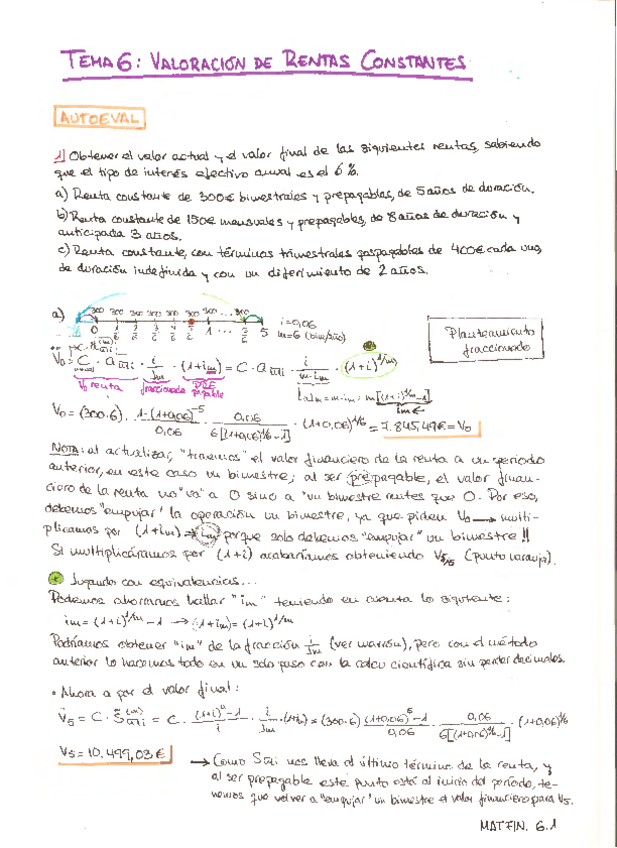 TEMA 6: VALORACIÓN DE RENTAS CONSTANTES
AUTOEVAL
1) Obtener el valor actual y el valor final de las siguientes rentas, sabiendo
que el tipo de interés efectivo anual es el 6%.
a) Renta constante de 300€ bimestrales y prepagables, de 5 años de duración.
b) Renta constante de 150€ mensuales y prepagables, de 8 años de duración y
anticipada 3 años.
c) Renta constante, con términos trimestrales pospagables de 400€ cada uno,
de duración indefinida y con un diferimiento de 2 años.
a) 300 300 300 300 300 300 300 ... 300
i=0,06
m=6 (bim/año)
Planteamiento
fraccionado
V0 renta fraccionada prepagable
V0 = (300·6) · 1-(1+0,06)^-5 / 0,06 · 0,06 / 6[(1+0,06)^1/6 -1] · (1+0,06)^1/6 = 7.845,49€ = V0
NOTA: al actualizar, "traemos" el valor financiero de la renta a un periodo
anterior, en este caso un bimestre; al ser prepagable, el valor finan-
ciero de la renta no "va" a 0 sino a "un bimestre antes que 0. Por eso,
debemos "empujar" la operación un bimestre, ya que piden V0 → multi-
plicamos por (1+im) → im porque solo debemos "empujar" un bimestre!!
Si multiplicáramos por (1+i) acabaríamos obteniendo V5/6 (punto naranja).
Jugando con equivalencias...
Podemos ahorrarnos hallar "im" teniendo en cuenta lo siguiente:
im = (1+i)^1/m - 1 → (1+im) = (1+i)^1/m
Podríamos obtener "im" de la fracción i/jm (ver marrón), pero con el método
anterior lo hacemos todo en un solo paso con la calcu científica sin perder decimales.
• Ahora a por el valor final:
V5 = 10.499,03€
→ Como S n̄|i nos lleva al último término de la renta, y
al ser prepagable este punto está al inicio del periodo, te-
nemos que volver a "empujar" un bimestre el valor financiero para V5.
MATFIN. 6.1